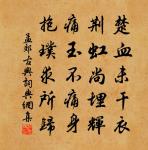 楚血未干衣
荆虹尚埋輝
痛玉不痛身
抱璞求所歸
孟郊古興詞典網集